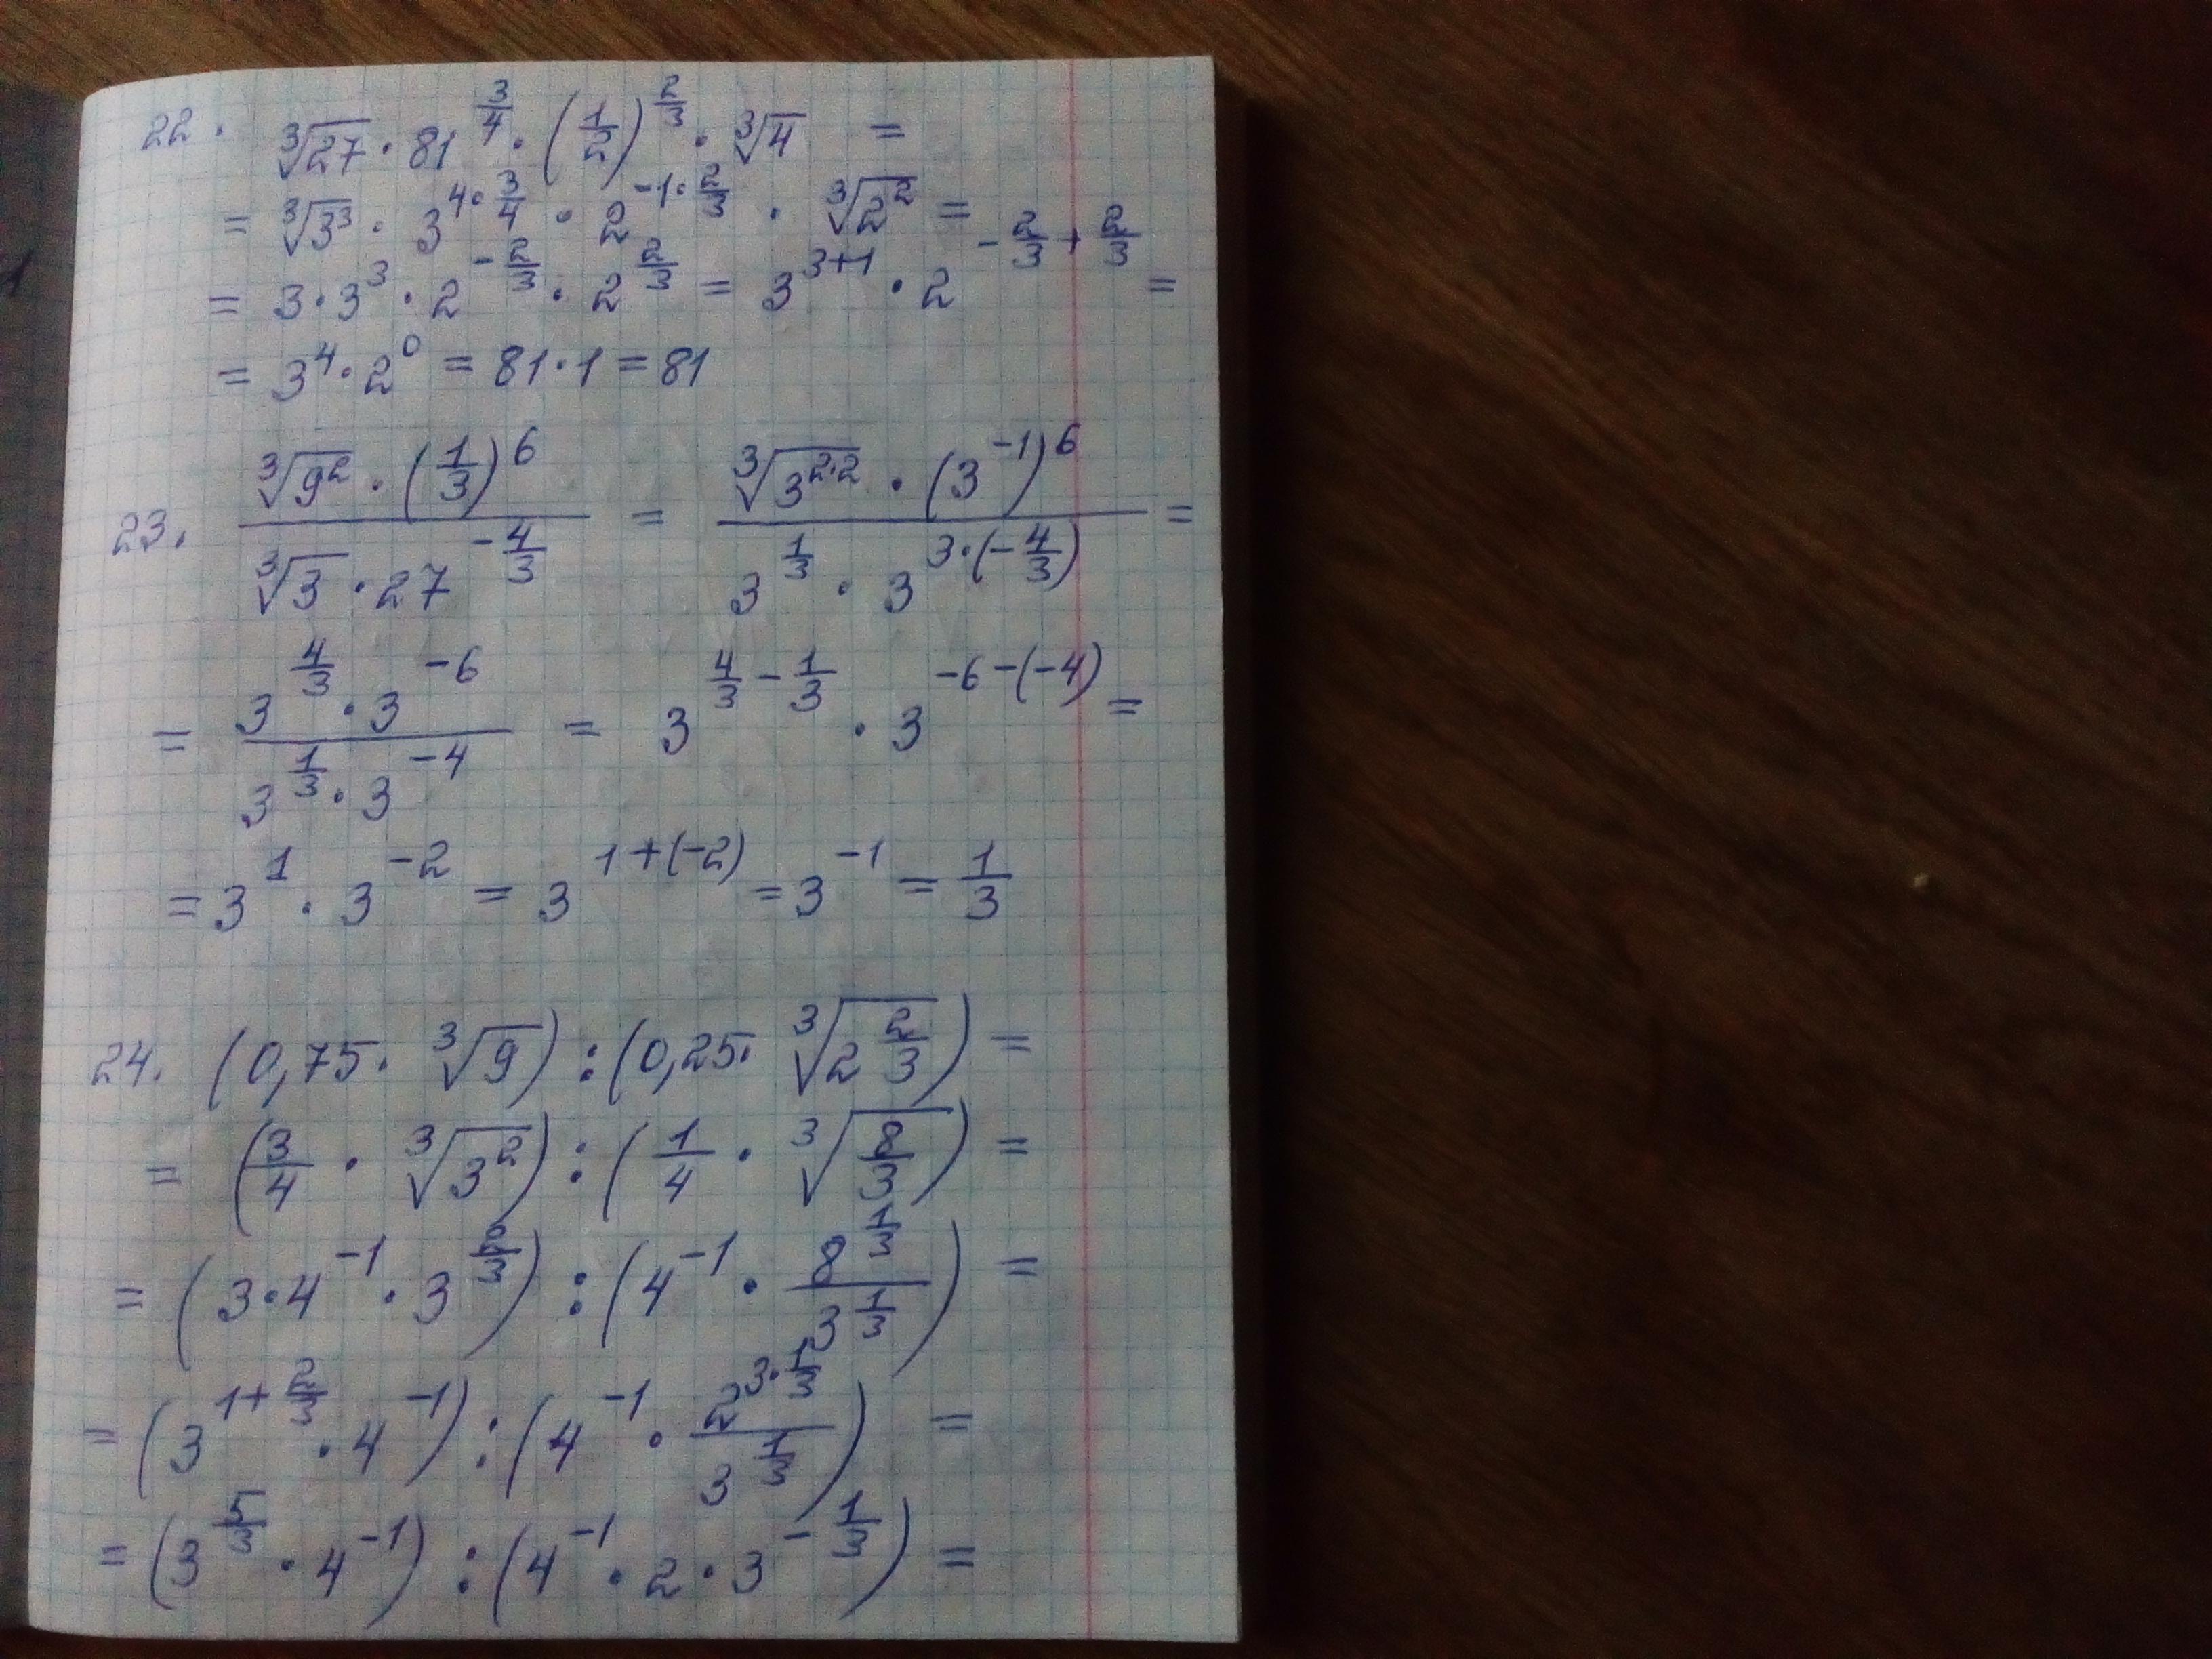 22. ∛27 · 81^(3/4) · (1/2)^(2/3) · ∛4 =
= ∛3³ · 3^(4·3/4) · 2^(-1·2/3) · ∛2² =
= 3 · 3³ · 2^(-2/3) · 2^(2/3) = 3^(3+1) · 2^(-2/3+2/3) =
= 3⁴ · 2⁰ = 81 · 1 = 81
23. (∛9² · (1/3)⁶)/(∛3 · 27^(-4/3)) = (∛3^(2·2) · (3⁻¹)⁶)/(3^(1/3) · 3^(3·(-4/3))) =
= (3^(4/3) · 3⁻⁶)/(3^(1/3) · 3⁻⁴) = 3^(4/3-1/3) · 3^(-6-(-4)) =
= 3¹ · 3⁻² = 3^(1+(-2)) = 3⁻¹ = 1/3
24. (0,75 · ∛9) : (0,25 · ∛(2 2/3)) =
= (3/4 · ∛3²) : (1/4 · ∛(8/3)) =
= (3 · 4⁻¹ · 3^(2/3)) : (4⁻¹ · 8^(1/3)/3^(1/3)) =
= (3^(1+2/3) · 4⁻¹) : (4⁻¹ · 2^(3·1/3)/3^(1/3)) =
= (3^(5/3) · 4⁻¹) : (4⁻¹ · 2 · 3^(-1/3)) =